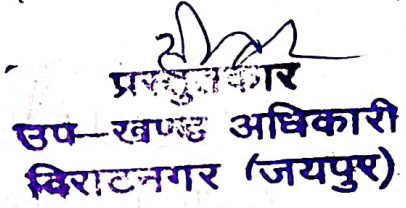 प्रस्तुतकार
उप-खण्ड अधिकारी
विराटनगर (जयपुर)